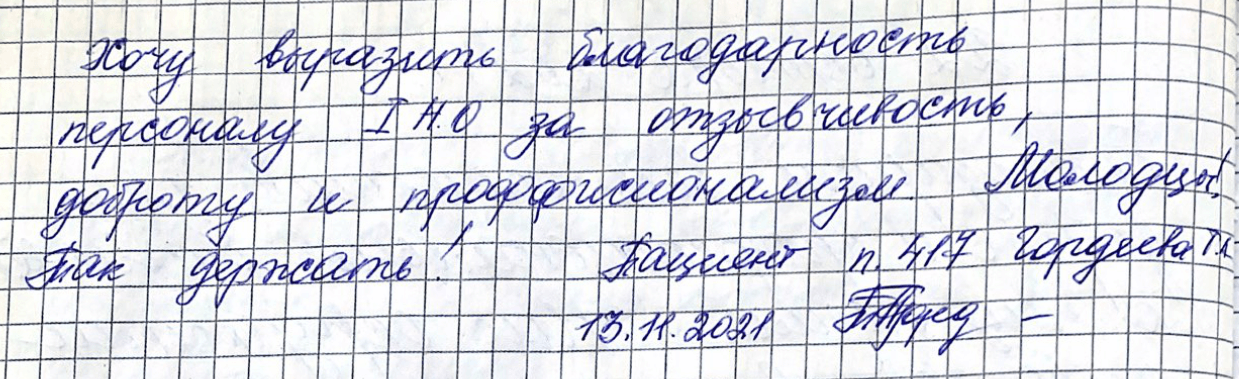 Хочу выразить благодарность
персоналу I Н.О за отзывчивость,
доброту и проффисионализм. Молодцы!
Так держать! Пациент п. 417 Гордеева
13.11.2021